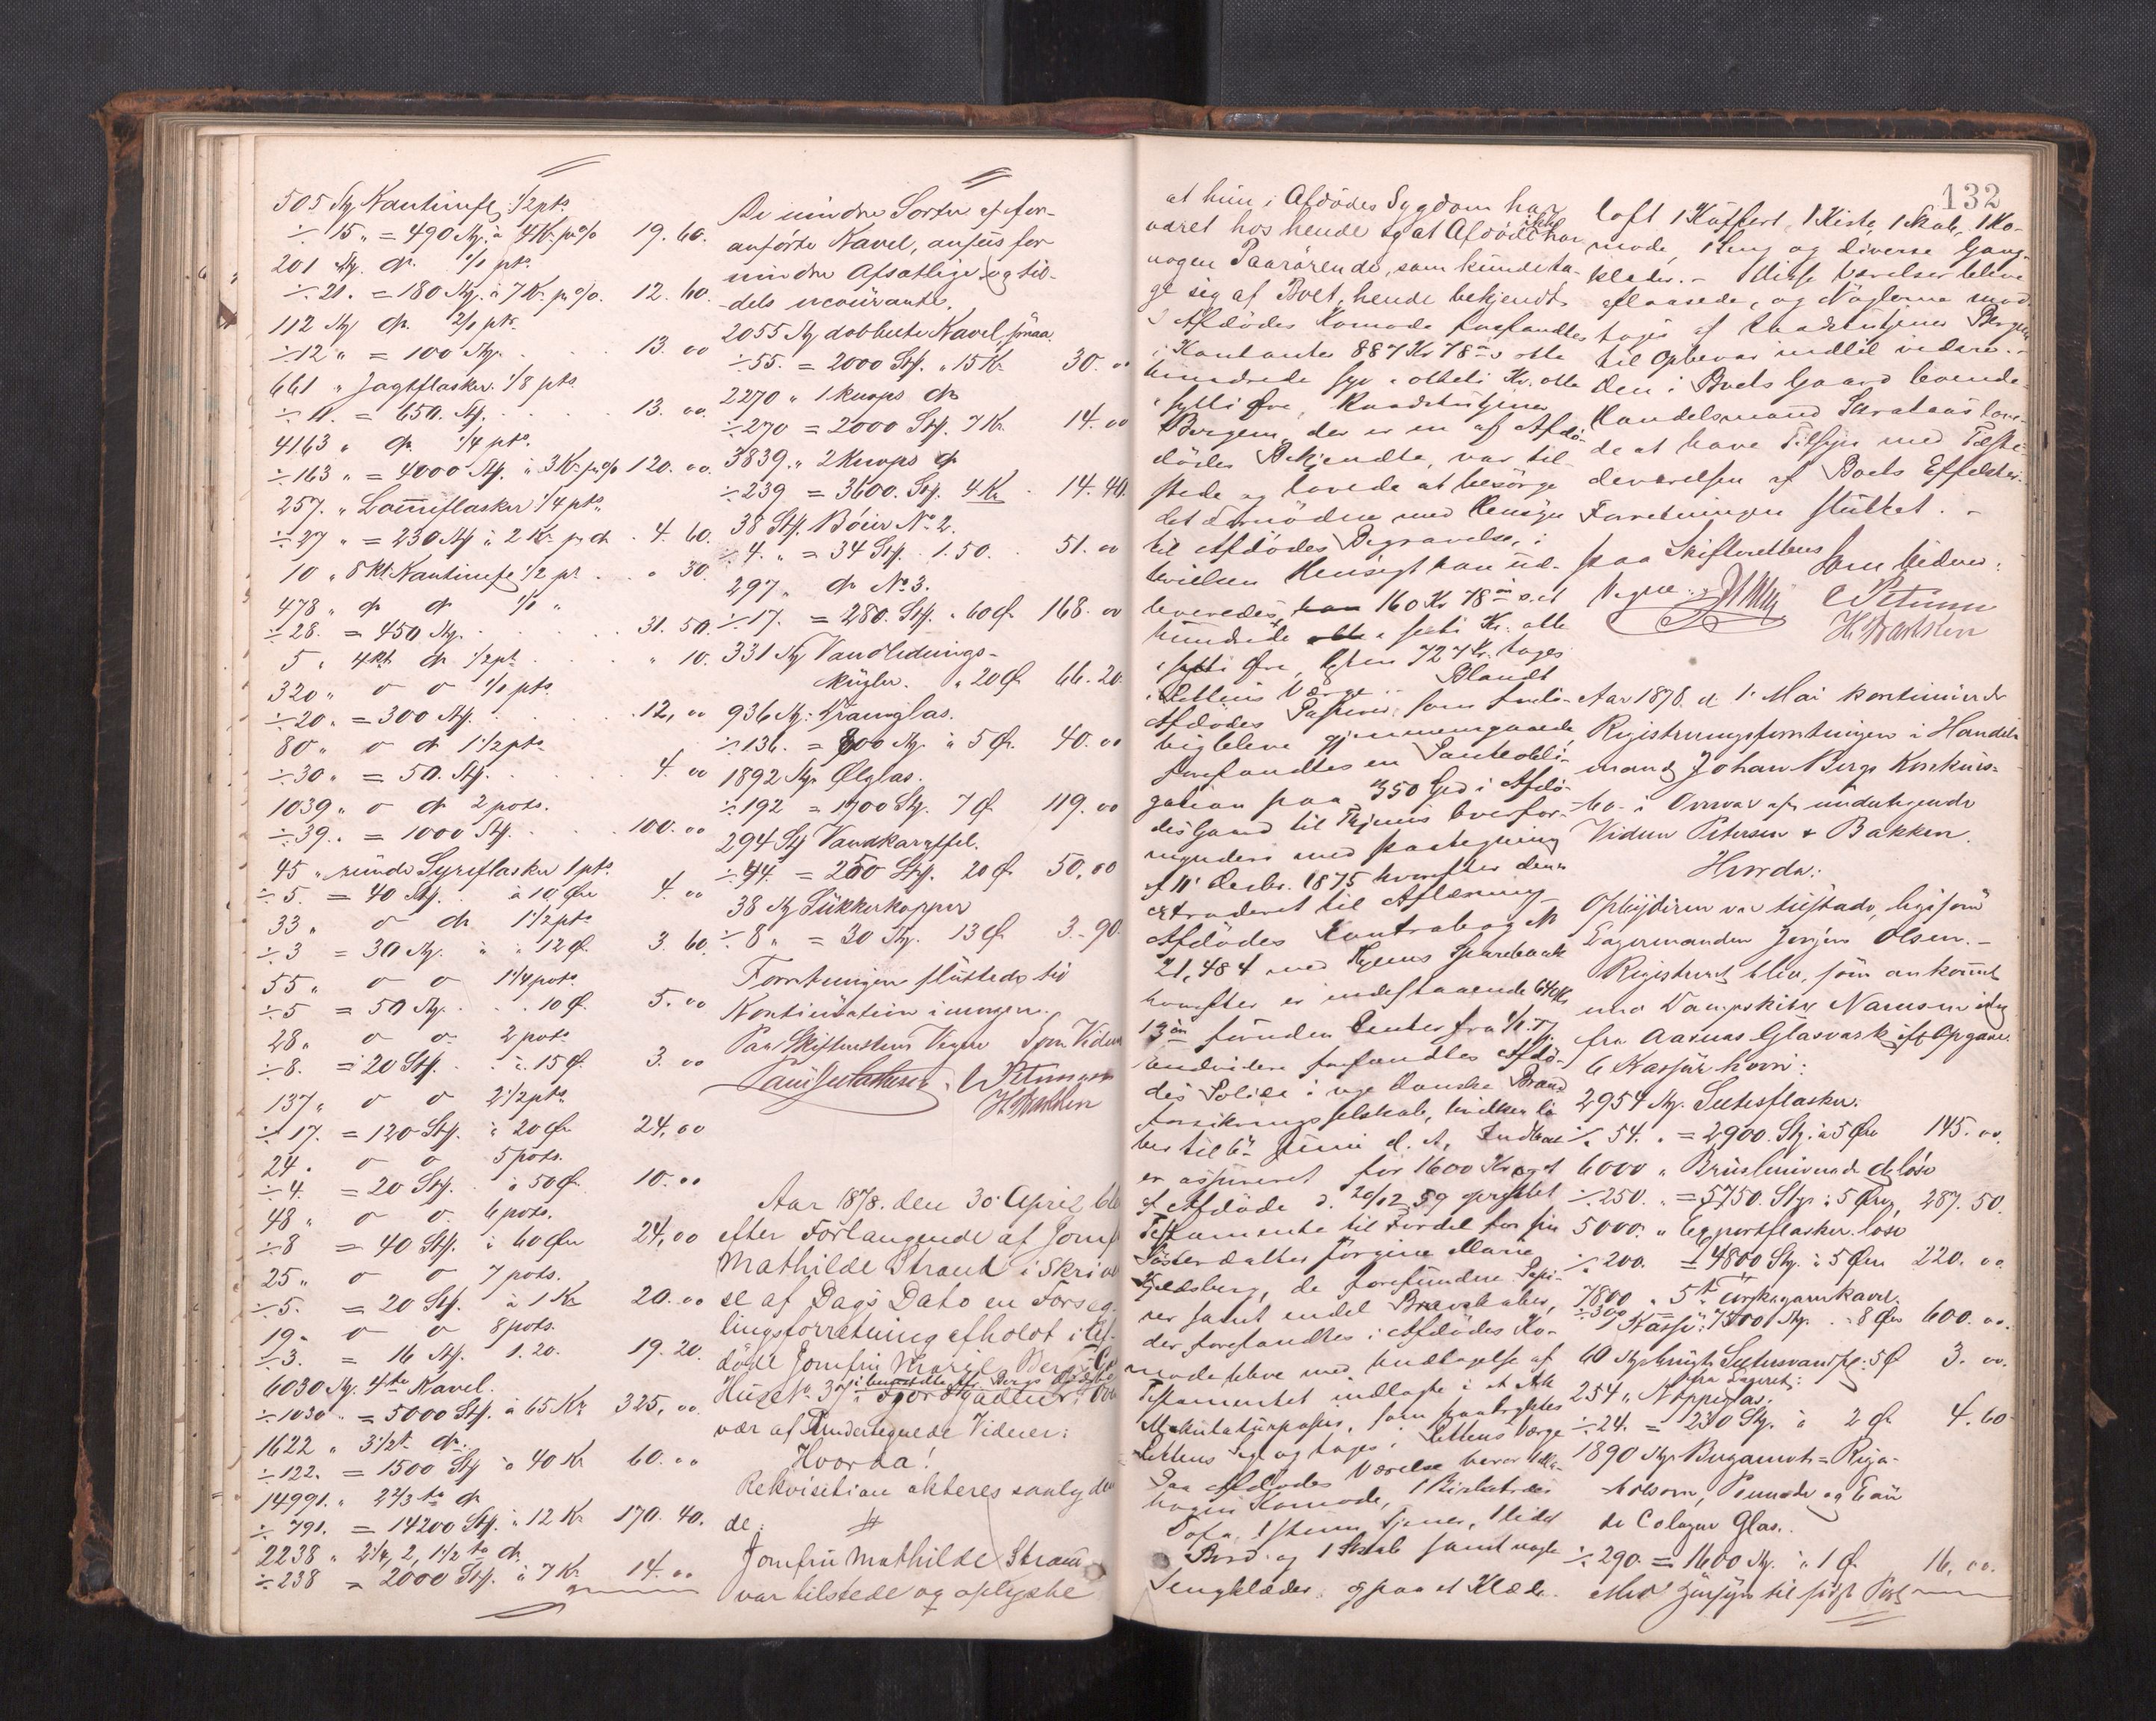 505 Stk Kantinefl: 1/2 pts
÷ 15 „ = 490 Stk. à 4 Kr. pr % 19. 60.
201 Stk. do 1/1 pts.
÷ 21. = 180 Stk. à 7 Kr. pr %. 12. 60.
112 Stk do 2/1 pts.
÷ 12 „ = 100 Stk. 13. 00
661 „ Jagtflasker 1/8 pts
÷ 11. = 650. Stk. 13. 00.
4163 „ do 1/4 pts.
÷ 163 „ = 4000 Stk. à 3 Kr. pr % 120. 00.
257. „ Lommeflasker 1/4 pts.
÷ 27 „ = 230 Stk à 2 Kr. pr do. 4. 60.
10 „ 8 kt. Kantinefl 1/2 pt. „ 30.
478 „ do do 1/1 „
÷ 28. = 450 Stk. 31. 50.
5 „ 4 kt. do 1/2 pt. „ 10.
320 „ o o 1/1 pts.
÷ 20 „ = 300 Stk. 12, 00
80 „ o do 1 1/2 pts
÷ 30 „ = 50. Stk. 4. 00
1039 „ o do 2 pots.
÷ 39. = 1000 Stk. 100. 00
45 „ runde Syreflasker 1 pt.
÷ 5. = 40 Stk. à 10 Øre 4. 00
33 „ o do 1 1/2 pts
÷ 3 = 30 Stk. à 12 Ø. 3. 60.
55 „ o o 1 1/4 pots.
÷ 5 = 50 Stk. 10 Ø. 5. 00
28 „ o o 2 pots
÷ 8. = 20 Stk. à 15 Ø. 3. 00
137 „ o o 2 1/2 pts.
÷ 17. = 120 Stk. à 20 Øre 24, 00
24. o o 5 pots.
÷ 4. = 20 Stk. à 50 Ø. 10. 00
48 „ o o 6 pots.
÷ 8 = 40 Stk. à 60 Øre 24, 00
25 „ o o 7 pots.
÷ 5. = 20 Stk. à 1 Kr 20. 00
19 „ o o 8 pots.
÷ 3. = 16 Stk. 1. 20. 19. 20.
6030 Stk. 4te Kavel.
÷ 1030 „ = 5000 Stk. à 65 Kr. 325, 00.
1622 „ 3 1/2 t. do.
÷ 122. = 1500 Stk à 40 Kr 60. 00
14991. „ 2 2/3 ta do
÷ 791. = 14200 Stk. à 12 Kr 170. 40.
2238 „ 2 1/4, 2, 1 1/2 ta do
÷ 238 = 2000 Stk. à 7 Kr. 14. 00
De mindre Sorter af for-
anförte Kavel, ansees for
mindre Afsætlige og til-
dels ucourante.
2055 Stk dobbelte Kavel, smaa
÷ 55. = 2000 Stk. „ 15 Kr. 30. 00
2270 „ 1 knops do
÷ 270 = 2000 Stk. 7 Kr 14. 00
3839. „ 2 Knops do
÷ 239 = 3600. Stk. 4 Kr. 14. 40.
38 Stk. Böier No. 2.
÷ 4. „ = 34 Stk. 1. 50. 51. 00
297 „ do No. 3.
÷ 17. = 280. Stk. „ 60 Ø. 168. 00
331 Stk Vandlednings-
kugler. „ 20 Ø. 66. 20.
936 Stk: Dramglas.
÷ 136. = 800 Stk. à 5 Ø. 40. 00
1892 Stk. Ølglas.
÷ 192 = 1700 Stk. 7 Ø. 119. 00
294 Stk Vandkaraffel.
÷ 44. = 250 Stk. 20 Ø. 50, 00
38 Stk Sukkerkopper
÷ 8 „ = 30 Stk. 13 Ø. 3. 90.
Forretningen sluttedes til
Kontinuation imorgen.
Paa Skifterettens Vegne Som Vidner
Petersen
H. Bakken
Aar 1878. den 30 April blev
efter Forlangende af Jomf
Mathilde Strand i Skrivel
se af Dags Dato en Forseg-
lingsforretning afholdt i Af-
döde Jomfru Marie Bergs Bo
Huset No. 37 i Fjordgaden, Over
vær af Undertegnede Vidner:
Hvorda!
Rekvisition akteres saalyden
de: #
Jomfru Mathilde Strand
var tilstede og oplyste
132
at hun i Afdödes Sygdom har
været hos hende og at Afdöde ikke har
nogen Paarörende, som kunde ta-
ge sig af Boet, hende bekjendt
I Afdödes Komode forefandtes
i Kontanter 887 Kr 78 öre otte
hundrede syv & otteti Kr. otte
& sytti Øre, Raadstutjener
Bergem der er en af Afdö-
dödes Bekjendte, var til-
stede og lovede at besörge
det Fornödne med Hensyn
til Afdödes Begravelse, i
hvilken Hensigt han ud-
leveredes 160 Kr 78 öre et
hundrede & seksti Kr. otte
& sytti Øre, Resten 727 Kr. toges
i Rettens Værge. Blandt
Afdödes Papirer, som fuldstæn-
dig bleve gjennemgaaede,
forefandtes en Panteobli-
gation paa 350 Spd i Afdö-
des Gaard til Byens Overfor-
mynderi med paategning
af 11 Decbr. 1875 hvorefter den er
extraderet til Aflæsning
Afdödes Kontrabog No
21,484 med Byens Sparebank
hvorefter er indestaaende 640 Kr
13 öre foruden Renter fra 1/1 78
endvidere forefandtes Afdö-
des Police i den Norske Brand
forsikringsselskab, hvilken lö
ber til 6 Juni d. A. Indboet
er assureret for 1600 Kr og et
af Afdöde d. 20/12 59 oprettet
Testamente til Fordel for sin
Sösterdatter Jörgine Marie
Kjeldsberg, de forefundne Papi-
rer samt endel Brevskaber,
der forefandtes i Afdödes Ko-
mode bleve med Undtagelse af
Testamentet indlagte i et Ark
Makulaturpapir, som paatryktes
Rettens Segl og toges i Rettens Værge
Paa Afdödes Værelse bærer 1 Ma-
hogni Komode, 1 Birketræs
Sofa, 1 stum Tjener, 1 lidet
Bord og 1 Skab samt nogle
Sengklæder. og paa et Klæde-
loft 1 Kuffert, 1 Kiste, 1 Skab, 1 Ko-
mode, 1 Seng og diverse Gang-
klæder. - Disse Værelser bleve
aflaasede, og Nöglerne mod
toges af Raadstutjener Bergem
til Opbevar indtil videre. -
Den i Boets Gaard boende
Handelsmand Saratas love-
de at have Tilsyn med Tilste-
deværelsen af Boets Effekter.
Forretningen sluttet. -
paa Skifterettens Som Vidner:
Vegne:
Petersen
H. Bakken
Aar 1878. d 1 Mai kontinuerede
Registreringsforretningen i Handels
mand Johan Bergs Konkurs-
bo. i Overvær af undertegnede
Vidner Petersen & Bakken.
Hvorda:
Opbydren var tilstede, ligesom
Lagermanden Jörgen Olsen. -
Registreret blev, som ankommet
med Dampskibet Namsen idag
fra Aasnæs Glasværk
6 Kasser hvori:
2954 Stk. Seltersflasker.
÷ 54. „ = 2900. Stk. à 5 Øre 145. 00.
6000 „ Bruslimonade do löse
÷ 250. „ = 5750. Stk. à 5 Øre, 287. 50.
5000 „ Exportflasker löse
÷ 200. = 4800 Stk. à 5 Øre 220. 00
7800 „ 5 t. Torskegarnkavel.
÷ 300 Kasse: 7500 Stk. à 8 Øre 600. 00.
60 Stk brugte Seltersvandfl: 5 Ø 3. 00.
fra Lageret:
254 „ Noppeglas.
÷ 24. = 230 Stk. à 2 Ø. 4. 60
1890 Stk. Bergamot = Riga-
balsom, Pomade og Eau
de Cologne Glas.
÷ 290. = 1600 Stk. à 1 Ø. 16, 00.
Med Hensyn til sidste Post